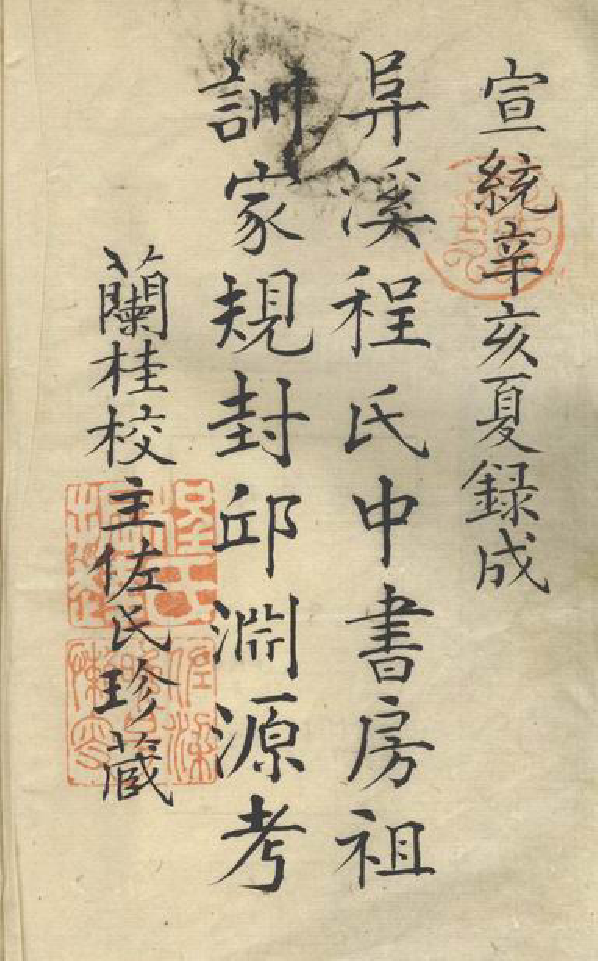 宣統辛亥夏録成
阜溪程氏中書房祖
訓家規封邱淵源考
蘭桂校主佐氏珍蔵